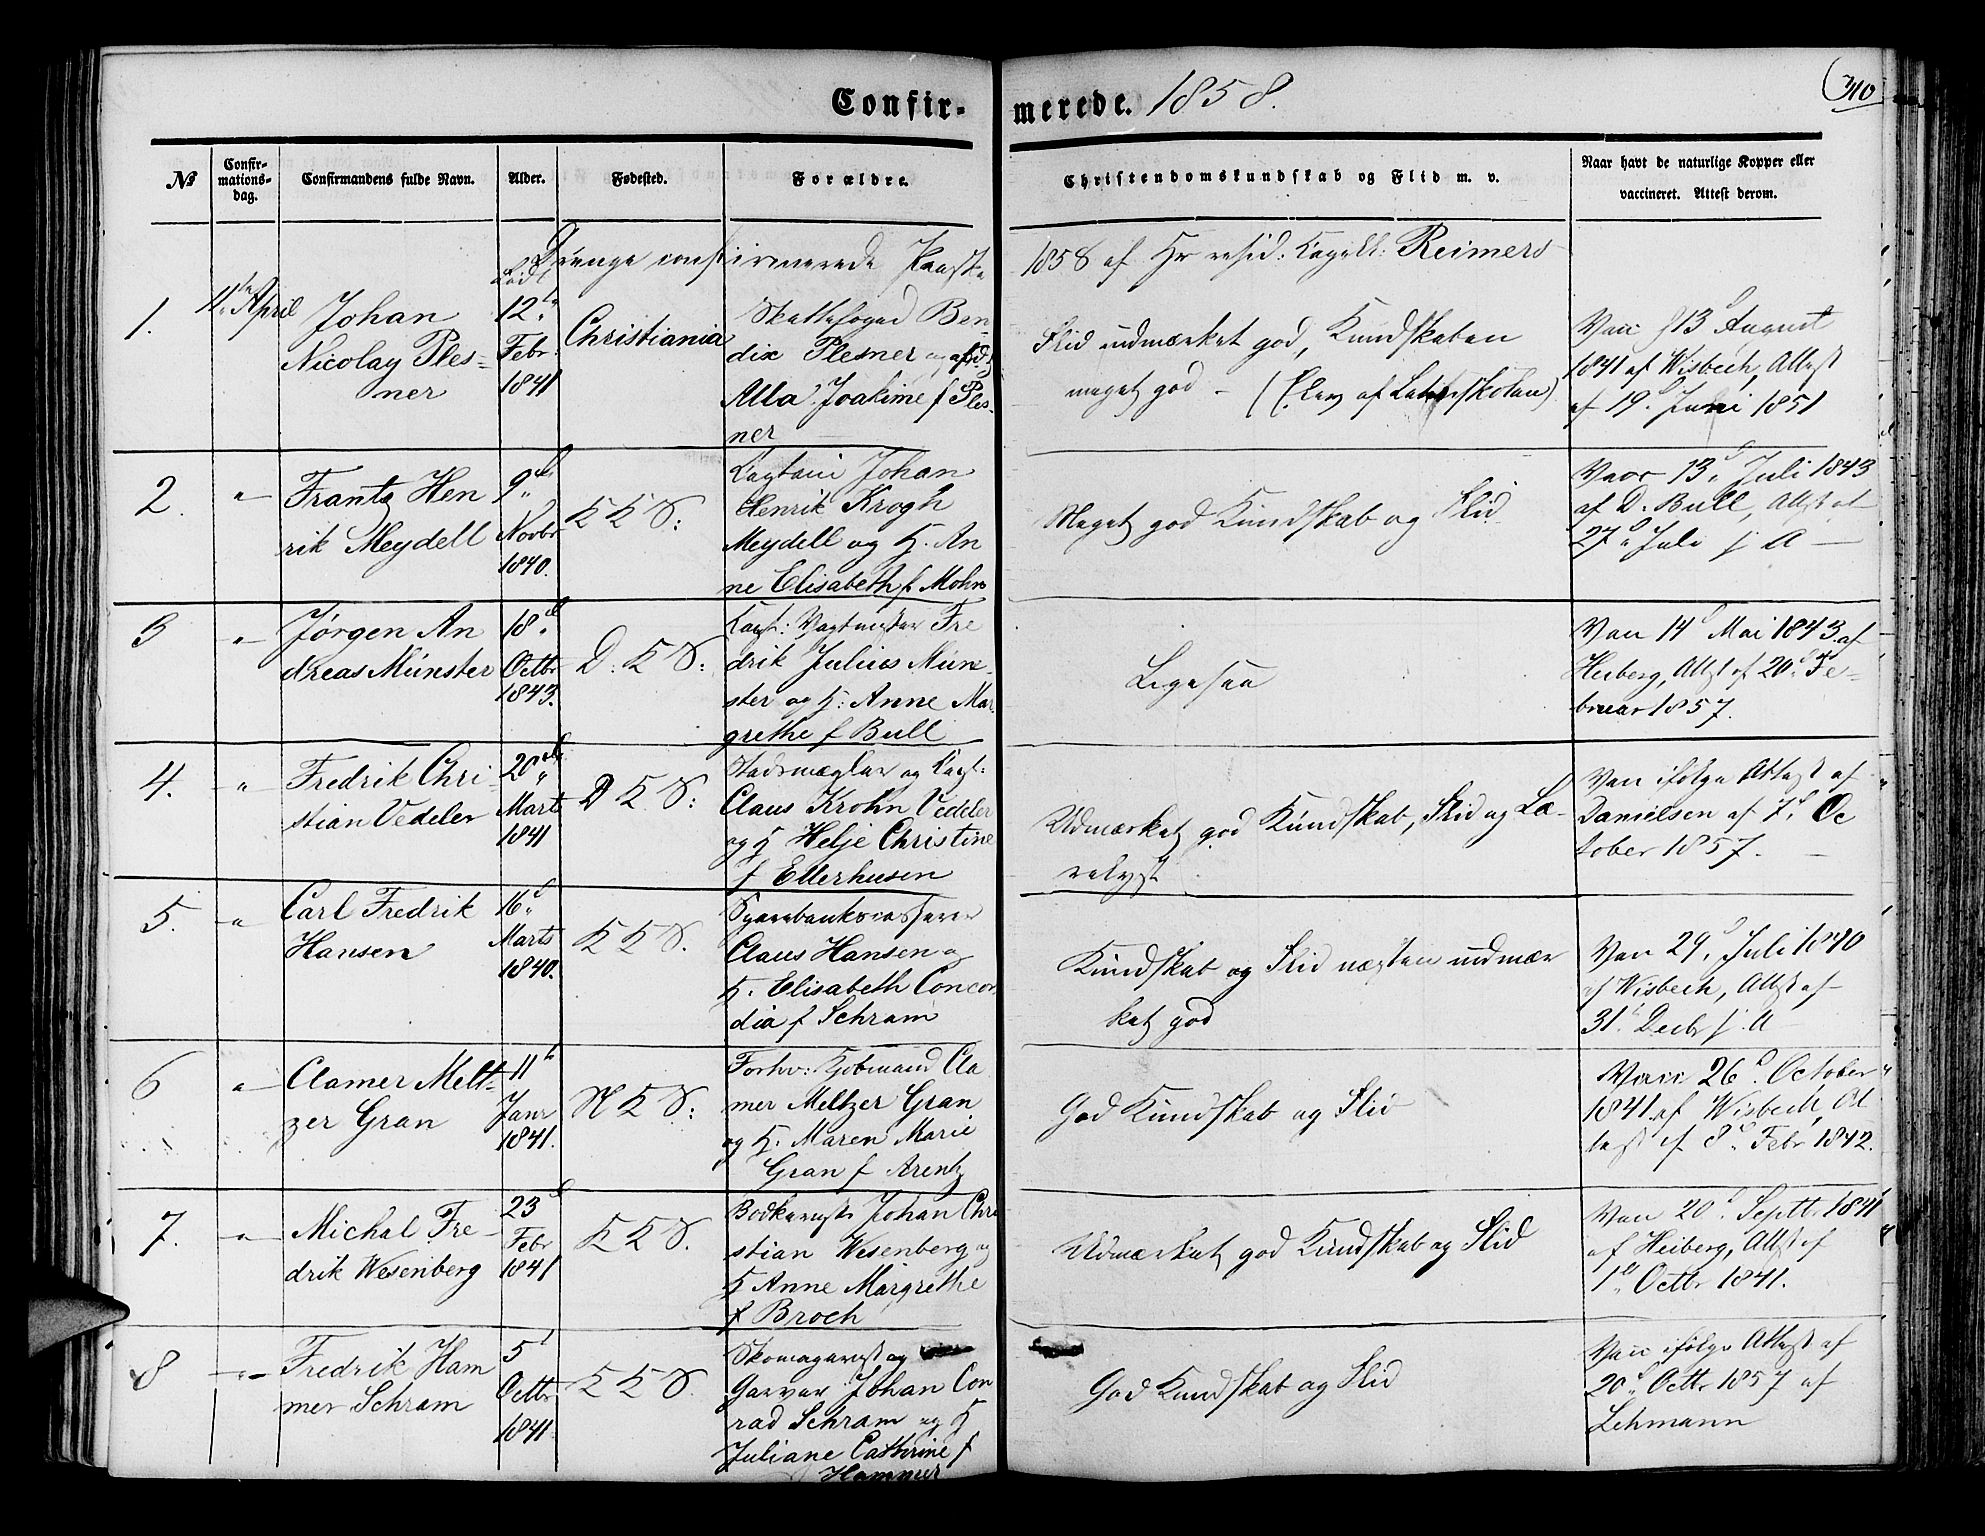 Confir-merede. 1858.
310
№
Confir-
mations-
dag.
Confirmandens fulde Navn.
Alder.
Fødested.
Forældre.
Christendomskundskab og Flid m. v.
Naar havt de naturlige Kopper eller
vaccineret. Attest derom.
Drenge confirmerede Paaske 1858 af Hr resid: Capell: Reimers
1.
11te April
Johan
Nicolay Ples-
ner
født
12te
Febr:
1841
Christiania
Skattefoged Ben-
dix Plesner og afd:
Alla Joakime f Ples-
ner
Flid udmærket god, Kundskaben
meget god – (Elev af Latinskolen)
Vacc d 13d August
1841 af Wisbech, Attest
af 19d Juni 1851
2.
"
Frantz Hen
rik Meydell
9d
Novbr
1840.
K K S:
Captain Johan
Henrik Krogh
Meydell og H. An
ne Elisabeth f Mohn
Meget god Kundskab og Flid
Vacc 13d Juli 1843
af D. Bull, Attst af
27d Juli s. A –
3
"
Jørgen An
dreas Münster
18d
Octbr
1843.
D. K S:
Capt: Vagtmester Fre
drik Julius Mün-
ster og H: Anne Mar
grethe f Bull
Ligesaa
Vacc 14d Mai 1843 af
Heiberg, Attst af 20d Fe-
bruar 1857.
4.
"
Fredrik Chri
stian Vedeler
20de
Marts
1841
D K S:
Stadsmægler og Capt:
Claus Krohn Vedeler
og H Helje Christine
f Ellerhusen
Udmærket god Kundskab, Flid og Læ-
relyst
Vacc ifølge Attest af
Danielsen af 7d Oc
tober 1857. –
5.
"
Carl Fredrik
Hansen
16d
Marts
1840.
K K S.
Sparebankscasserer
Claus Hansen og
H. Elisabeth Concor
dia f Schram
Kundskab og Flid næsten udmær
ket god
Vacc 29d Juli 1840
af Wisbech, Attst af
31d Decbr s. A –
6
"
Clamer Melt-
zer Gran
11te
Janr
1841.
N K S:
Forhv: Kjøbmand Cla
mer Meltzer Gran
og H. Maren Marie
Gran f Arentz
God Kundskab og Flid
Vacc 26d October
1841 af Wisbech, At
test af 8d Febr 1842.
7.
"
Michal Fre-
drik Wesenberg
23d
Febr
1841
K K S.
Bødkermestr Johan Chri
stian Wesenberg og
H Anne Margrethe
f Broch
Udmærket god Kundskab og Flid
Vacc 20d Septt. 1841
af Heiberg, Attst af
1d Octbr 1841.
8
"
Fredrik Ham
mer Schram
5d
Octbr
1841
K K S.
Skomagermest og
Garver Johan Con
rad Schram og H
Juliane Cathrine f
Hammer
God Kundskab og Flid
Vacc ifølge Attest af
20d Octbr 1857 af
Lehmann